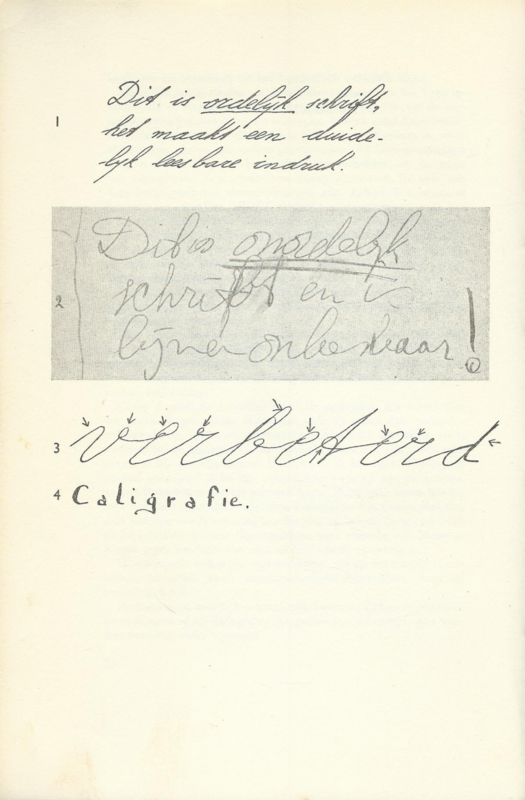 1
Dit is ordelijk schrift,
het maakt een duide-
lijk leesbare indruk.
2
Dit is onordelijk
schrift en is
bijna onleesbaar!
3 verbeterd
4 Caligrafie.